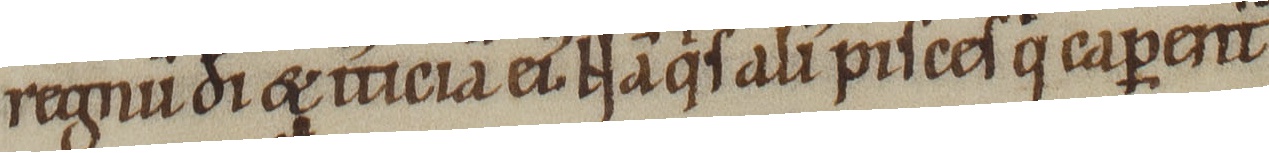 regnū di & iticiā ei. Nā qͥs ali pisces q caꝑent